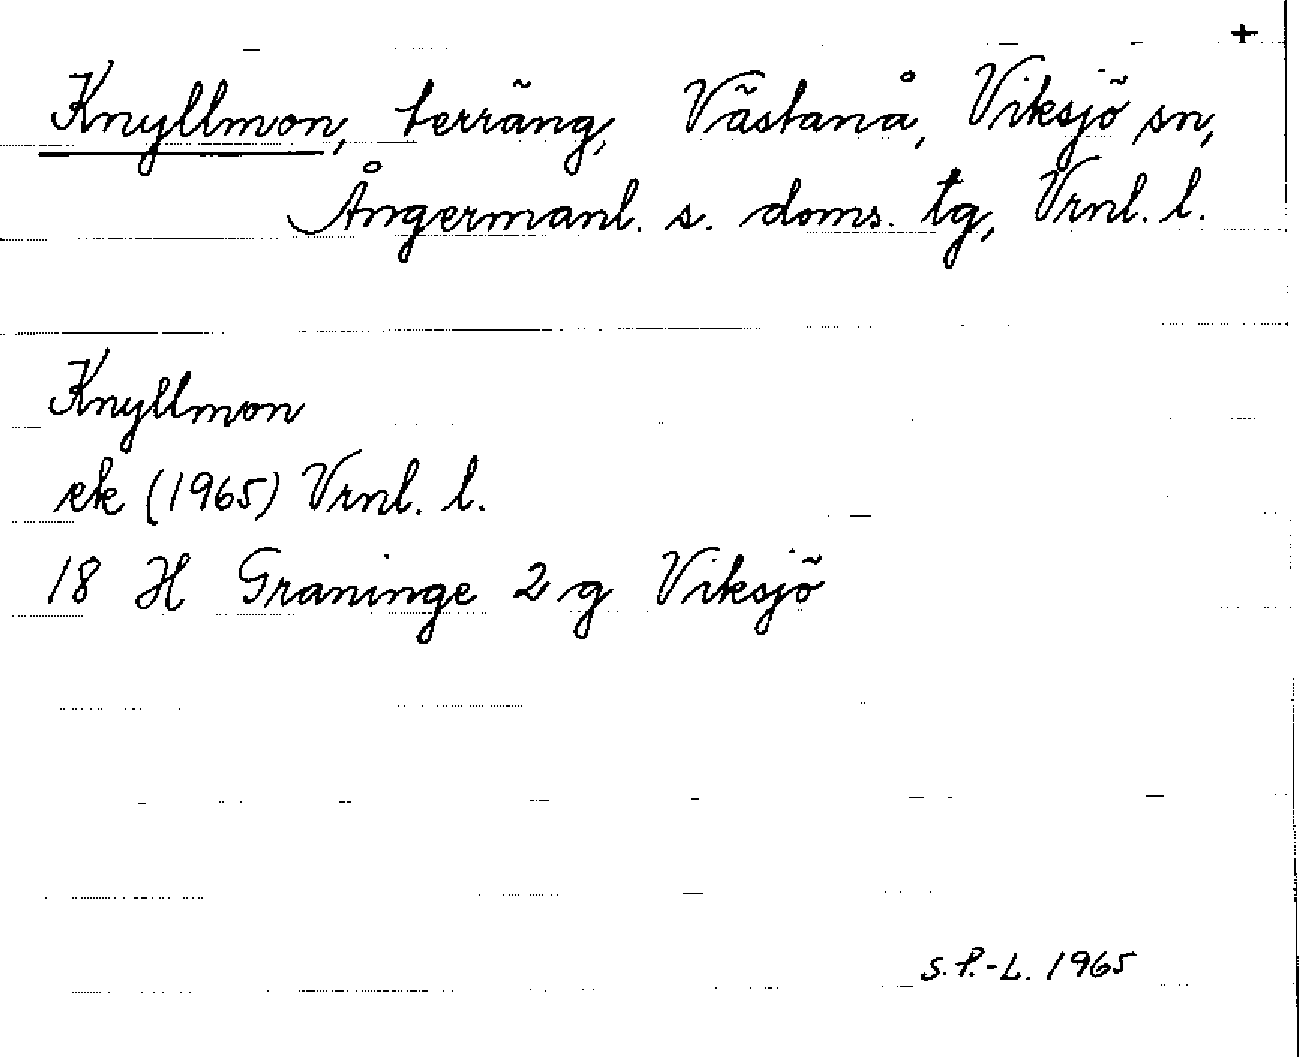 +
Knyllmon, terräng, Västanå, Viksjö sn,
Ångermanl. s. doms. tg, Vrnl. l.
Knyllmon
ek (1965) Vrnl. l.
18 H Graninge 2 g Viksjö
S.P.-L. 1965